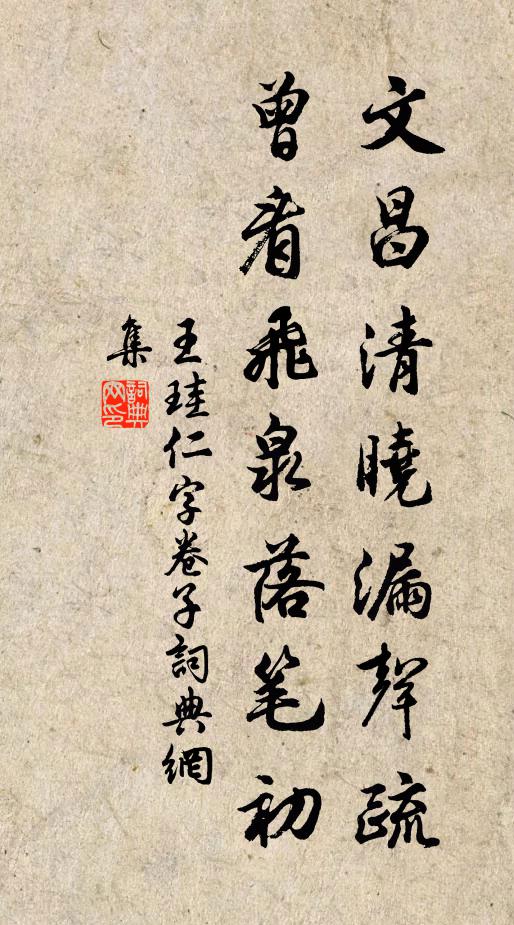 文昌清曉漏聲疏
曾看飛泉落笔初
王珪仁字卷子詞典網
集
詞典网印